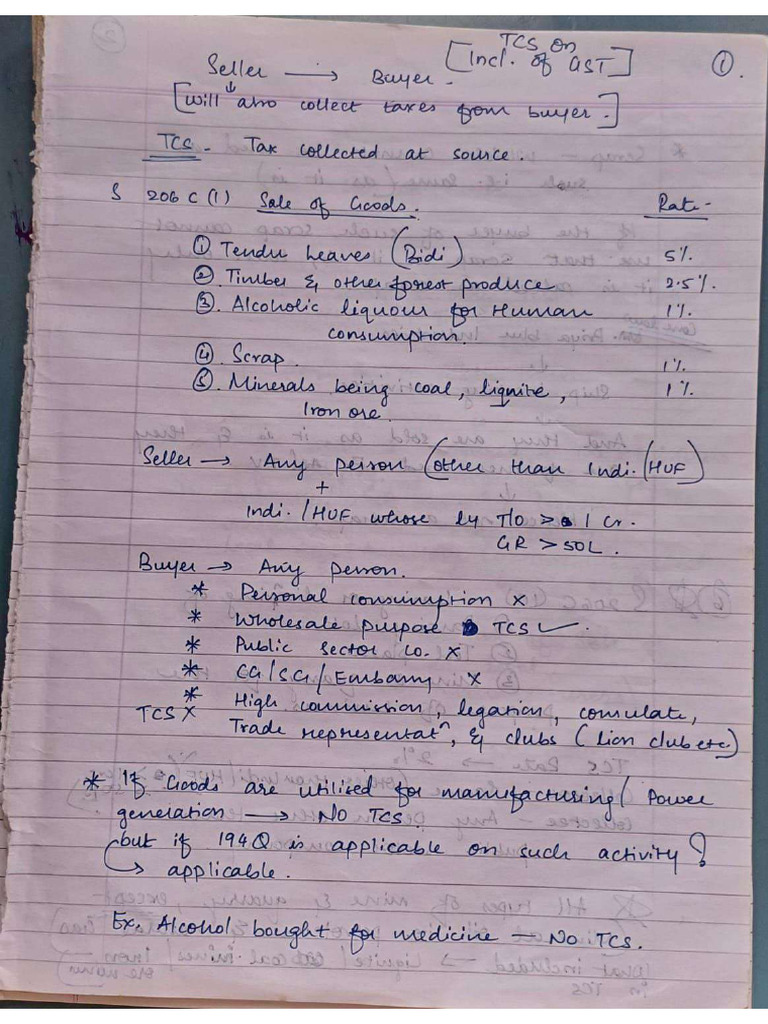 TCS on
[Incl. of GST]
①.
Seller → Buyer.
[will also collect taxes from buyer.]
TCS - Tax collected at source.
S 206 C (1) Sale of Goods. Rate-
① Tendu Leaves (Bidi) 5%
② Timber & other forest produce 2.5%.
③ Alcoholic liquour for Human 1%
consumption.
④ Scrap. 1%
⑤ Minerals being coal, lignite, 1%
Iron ore.
Seller → Any person (other than Indi./HUF)
+
Indi./HUF whose ly T/O > 1 Cr.
GR > 50L.
Buyer → Any person.
* Personal consumption ×
* Wholesale purpose TCS ✓.
* Public sector co. ×
* CG/SG/Embassy ×
* High commission, legation, consulate,
TCS × Trade representatn, & clubs (Lion club etc.)
* If Goods are utilised for manufacturing/Power
generation → NO TCS.
but if 194Q is applicable on such activity?
↳ applicable.
Ex. Alcohol bought for medicine → No TCS.